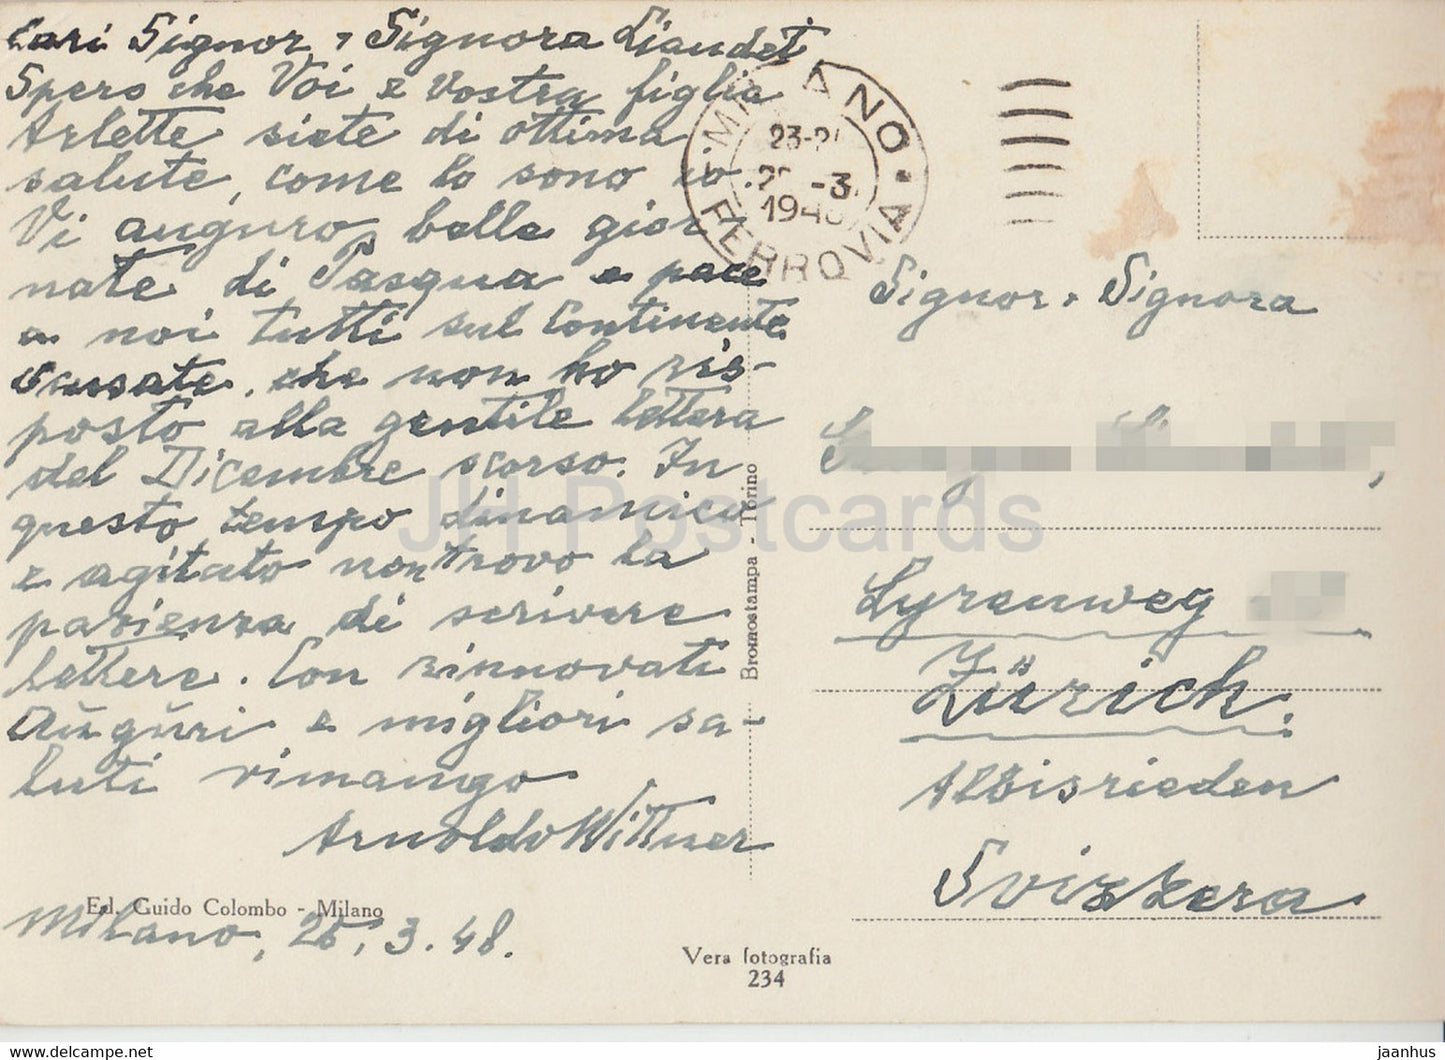 Cari Signor, Signora Liaudet
Spero che Voi e Vostra figlia
Arlette siete di ottima
salute, come lo sono io.
Vi auguro belle gior-
nate di Pasqua e pace
a noi tutti sul Continente.
Scusate, che non ho ris-
posto alla gentile lettera
del Dicembre scorso. In
questo tempo dinamico
e agitato non trovo la
pazienza di scrivere
lettere. Con rinnovati
Auguri e migliori sa-
luti rimango
Arnoldo Wittner
Ed. Guido Colombo - Milano
Milano, 25.3.48.
Bromostampa - Torino
Vera fotografia
234
MILANO FERROVIA
23-24
-3
194
Signor, Signora
Lyrenweg
Zürich.
Albisrieden
Svizzera
JH Postcards
eBay: justhepi
jaanhus